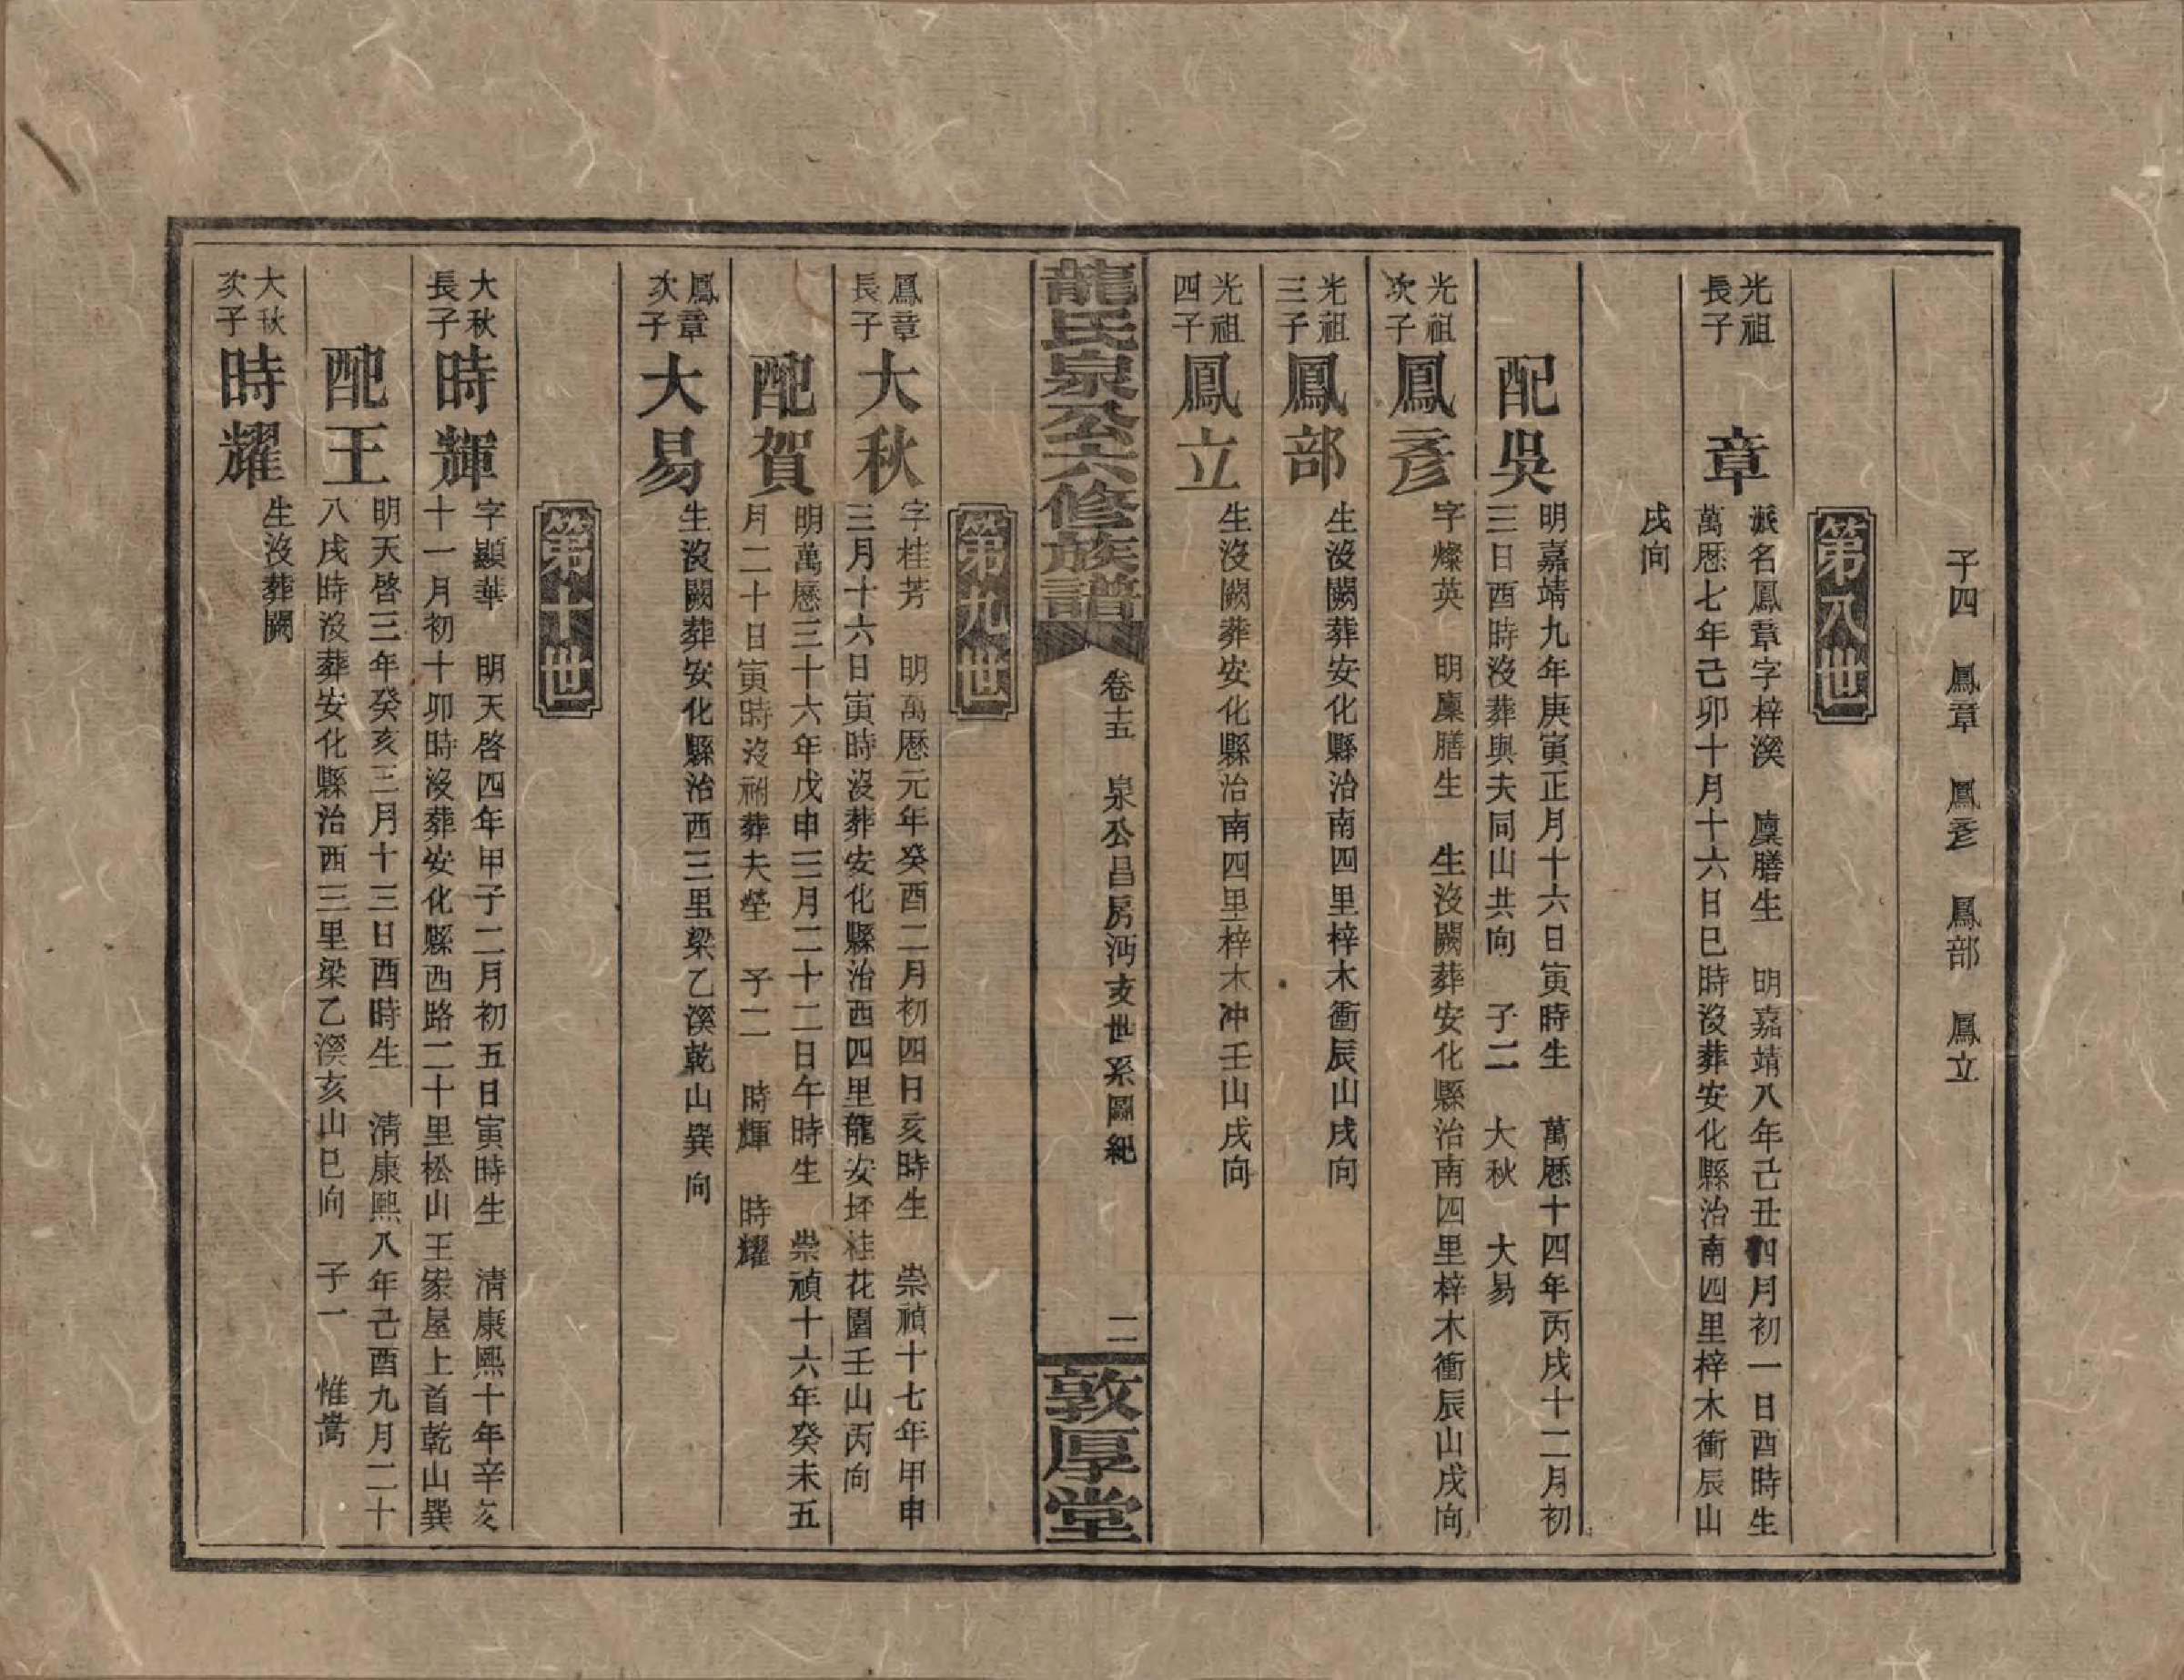 子四　鳳章　鳳彦　鳳部　鳳立
第八世
光祖
長子
章
派名鳳章字梓溪　廩膳生　明嘉靖八年己丑四月初一日酉時生
萬歷七年己卯十月十六日巳時沒葬安化縣治南四里梓木衝辰山
戌向
配吳
明嘉靖九年庚寅正月十六日寅時生　萬歷十四年丙戌十二月初
三日酉時沒葬與夫同山共向　子二　大秋　大易
光祖
次子
鳳彥
字燦英　明廩膳生　生沒闕葬安化縣治南四里梓木衝辰山戌向
光祖
三子
鳳部
生沒闕葬安化縣治南四里梓木衝辰山戌向
光祖
四子
鳳立
生沒闕葬安化縣治南四里梓木冲壬山戌向
龍氏泉公六修族譜
卷十五　泉公昌房沔支世系圖紀
二
敦厚堂
第九世
鳳章
長子
大秋
字桂芳　明萬歷元年癸酉二月初四日亥時生　崇禎十七年甲申
三月十六日寅時沒葬安化縣治西四里龍安坪桂花園壬山丙向
配賀
明萬歷三十六年戊申三月二十二日午時生　崇禎十六年癸未五
月二十日寅時沒祔葬夫塋　子二　時輝　時耀
鳳章
次子
大易
生沒闕葬安化縣治西三里梁乙溪乾山巽向
第十世
大秋
長子
時輝
字顯華　明天啓四年甲子二月初五日寅時生　清康熙十年辛亥
十一月初十卯時沒葬安化縣西路二十里松山王家屋上首乾山巽
配王
明天啓三年癸亥三月十三日酉時生　清康熙八年己酉九月二十
八戌時沒葬安化縣治西三里梁乙溪亥山巳向　子一　惟嵩
大秋
次子
時耀
生沒葬闕